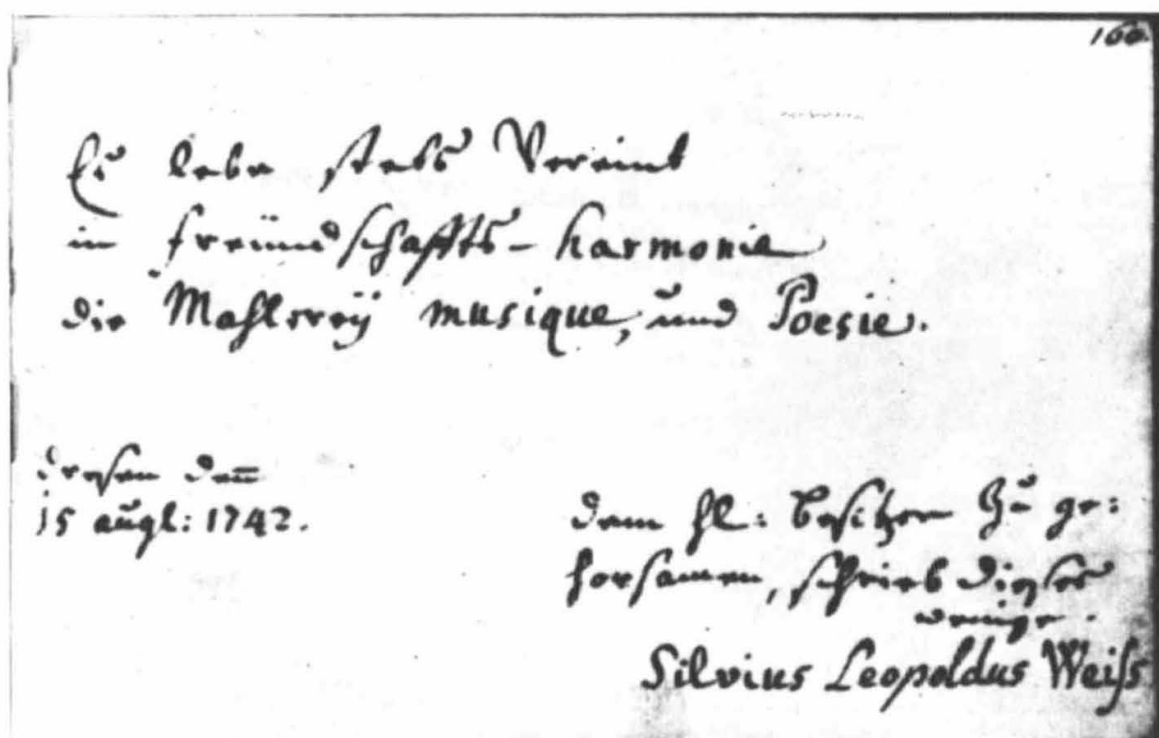 160.
Es lebe stets Vereint
in freündschaffts-harmonie
die Mahlereÿ musique, und Poesie.
dresen den̅
15 augl: 1742.
dem Hl: besitzer Zu ge:
horsamen, schrieb dieses
wenige.
Silvius Leopoldus Weiſs